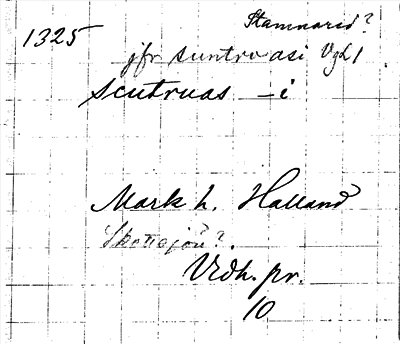 Stamnared?
1325
jfr suntruasi VgL1
scutruas -i
Mark h. Halland
Skottasjön?
Vidh. pr.
10